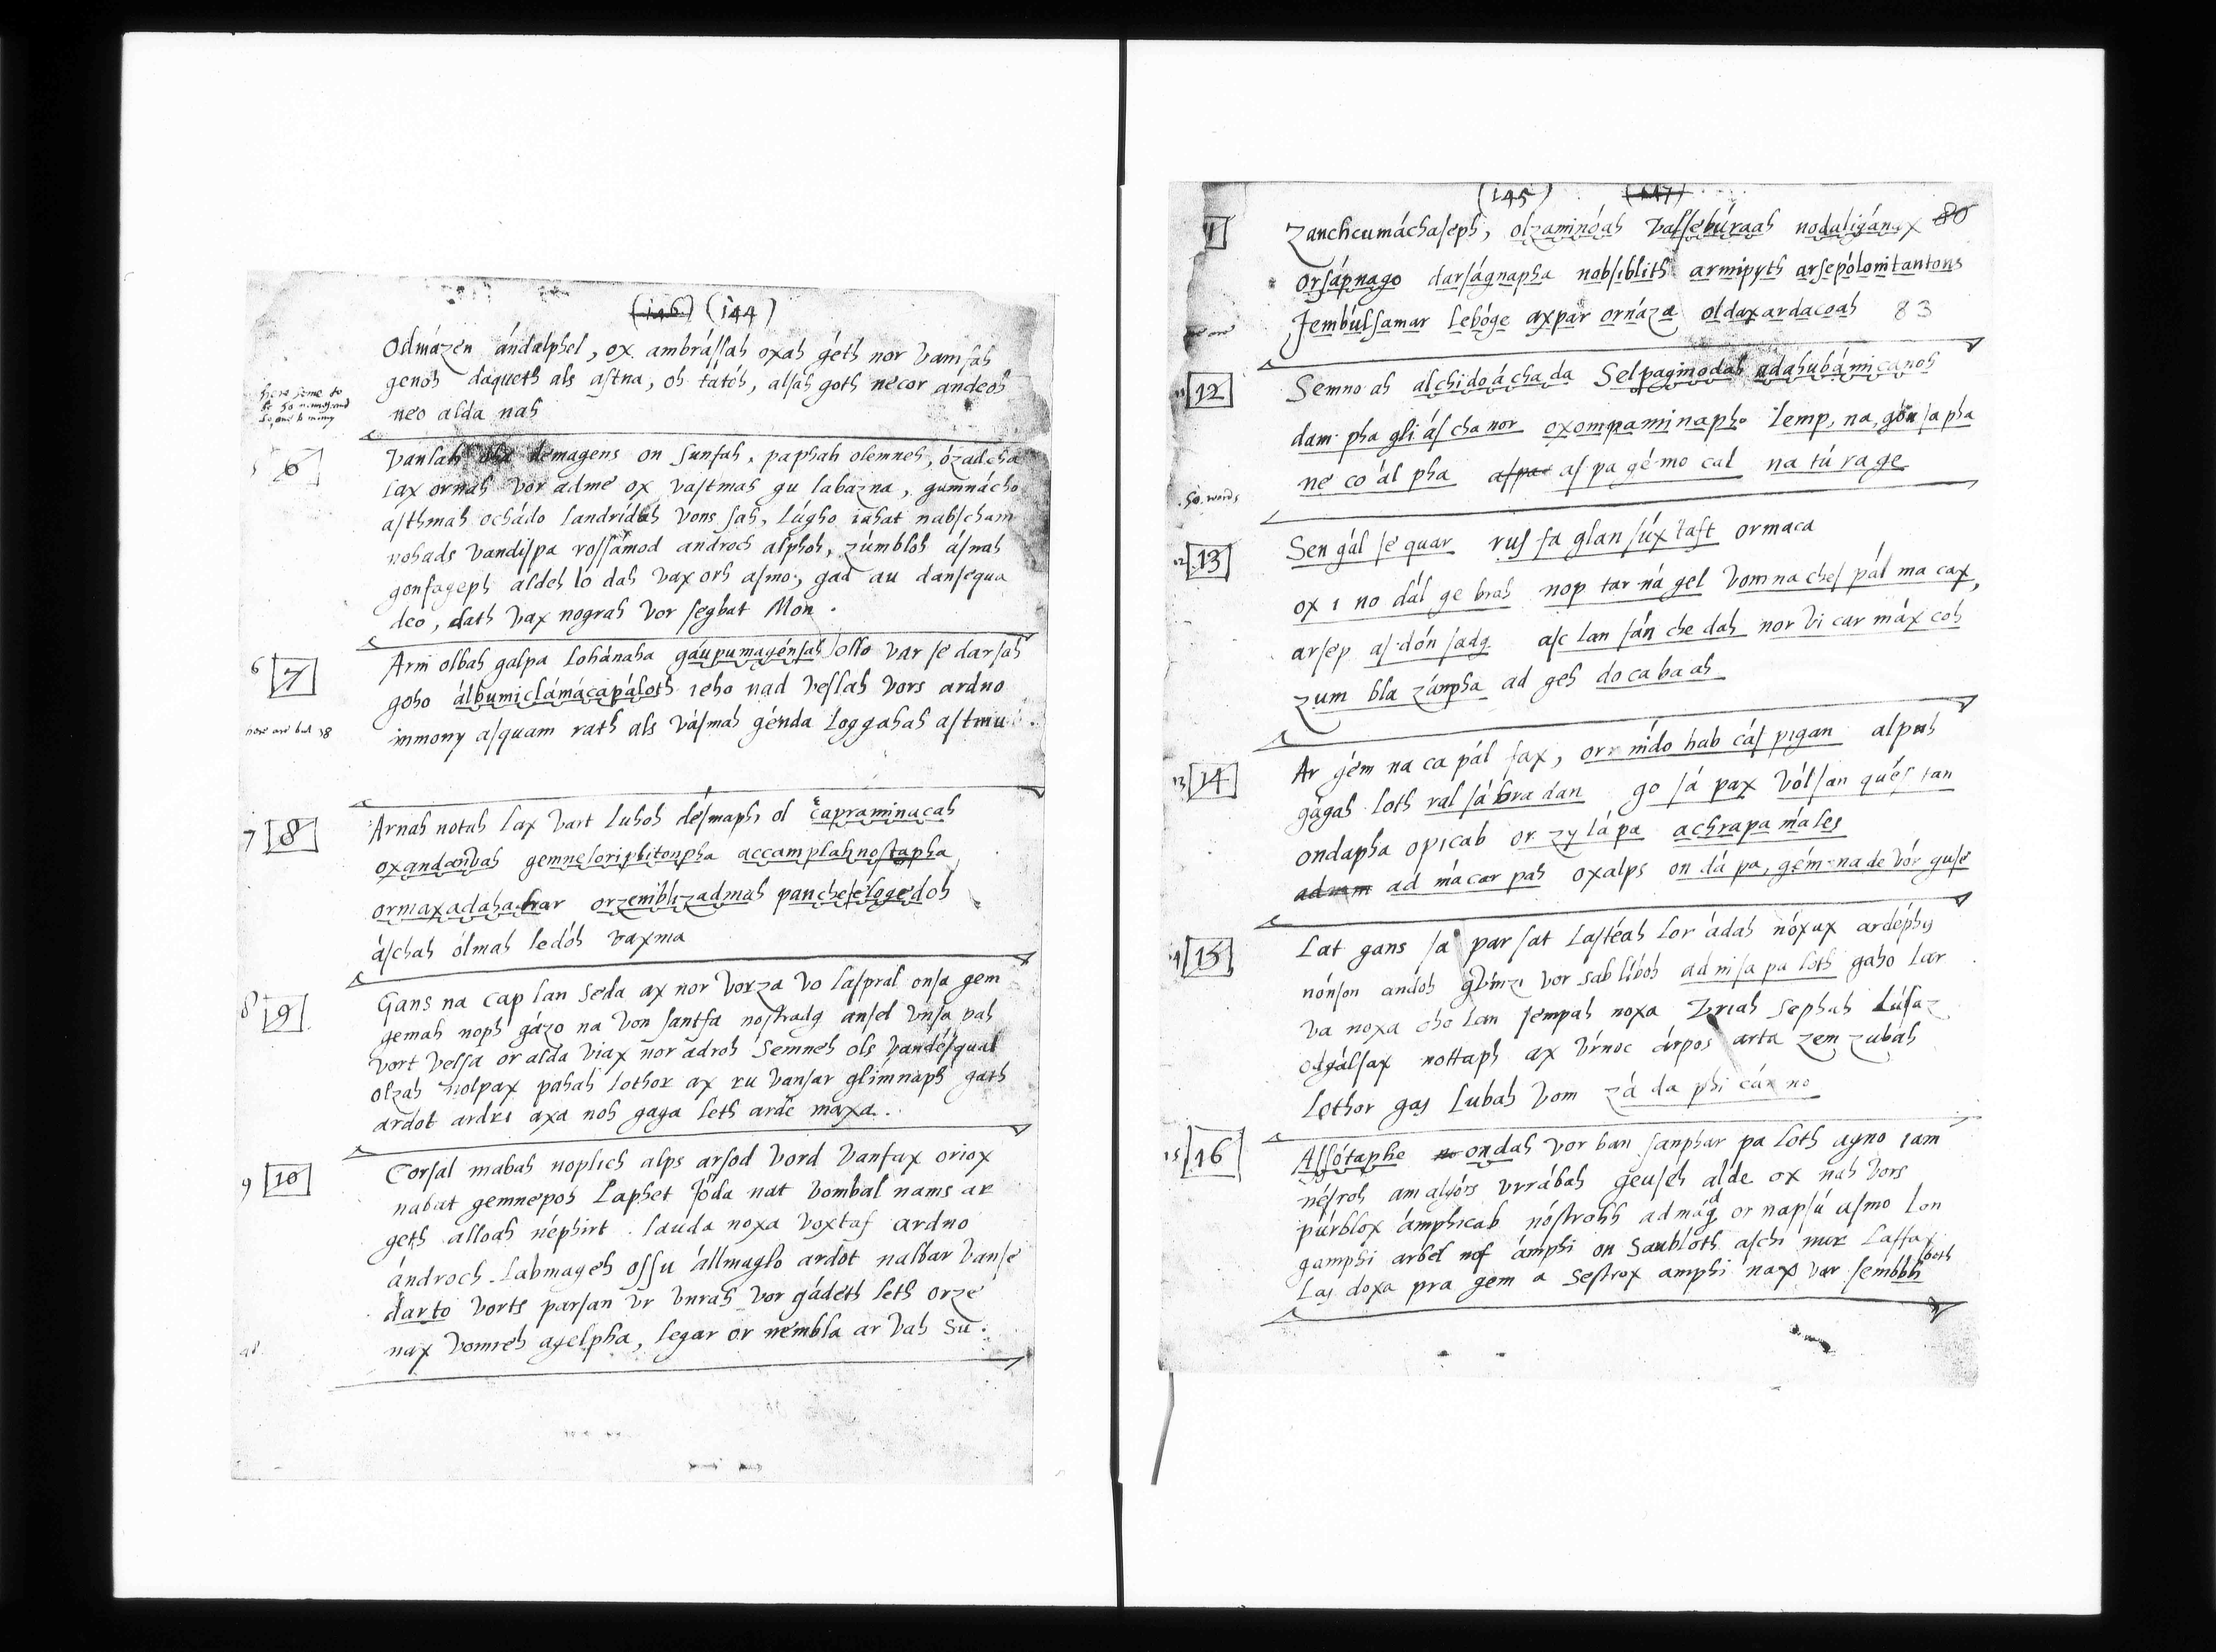 (146) (144)
Odmázen ándalphel, ox ambráſſah oxah géth nor vamſah
genoh daqueth als aſtna, oh tátóh, alſah goth necor andeoh
neo alda nah
here seme to
6
Vanlah demagens on ſunfah, paphah olemneh, ózadcha
lax ornah vor adme ox vaſtmah gu labazna, gamnácho
aſthmah ochádo landrídah vons ſah, lúgho iahat nabſcham
nohads vandiſpa roſſámod androch alphoh, zúmbloh áſnah
gonfageph aldeh lo dah vax orh aſmo, gad au danſequa
deo, dath vax nograh vor ſeghat Mon.
6 7
Arni olbah galpa lohánaha gáupumagénſah ollo var ſe darſah
goho álbumiclámácapáloth ieho nad veſlah vors ardno
inmony aſquam rath als váſmah génda loggahah aſtmu
here are but 38
7 8
Arnah notah lax vart luhoh déſmaph, ol capraminacah
oxandanvah gemneloriplitonpha accamplahnoſtapha
ormaxadahahar orzembliz admah pancheſelogedoh
áſchah ólmah ledóh vaxma
8 9
Gans na cap lan seda ax nor vorza vo laſpral onſa gem
gemah noph gázo na von ſantfa noſtradg anſel vnſa pah
vort veſſa or alda viax nor adroh semneh ols vandéſqual
olzah nolpax pahah lothor ax ru vanſar glimnaph gath
ardot ardri axa noh gaga leth arde maxa.
9 10
Corſal mabah noplich alps arſod vord vanfax oriox
nabat gemnepoh laphet Jóda nat vombal nams ar
geth alloah néphirt. lauda noxa voxtaf ardno
ándroch labmageh oſſu állmaglo ardot nalbar vanſe
darto vorts parſan vr vnrah vor gádeth leth orze
nax vomreh agelpha, legar or nembla ar vah su.
(145) (147)
80
Zancheumáchaſeph, olzaminóah valſebúraah nodaligánax
orſápnago darſágnapha nobſiblith armipyth arſepolonitantons
Jembúlſamar lebóge axpar ornáza oldaxardacoah 83
12
Semno ah al chi do á cha da Selpaginodah adahubámicanoh
dam pha gli áſ cha nor oxompaminaph. lemp, na, gón ſa pha
ne co ál pha aſpa aſ pa gé mo cal na tú ra ge
so. words
12 13
Sen gál ſe quar ruſ fa glan ſúx taſt ormaca
ox i no dál ge brah nop tar ná gel vom na cheſ pál ma cax,
arſep aſ dón ſadg. aſc lan ſán che dah nor vi car máx coh
zum bla zánpha ad geh do ca ba ah
13 14
Ar gém na ca pál fax, orr nído hab cáſ pigan alpuh
gágah loth ral ſá bra dan go ſá pax vól ſan quéſ tan
ondapha opicab or zy lá pa achrapa máles
admm ad mácar pah oxalps on dá pa, gém na de vór guſe
14 15
Lat gans ſa par ſat laſtéah lor ádah nóxax ardéphis
nónſon andóh gvinzi vor sab líboh ad ni ſa pa loth gaho lar
va noxa oho lan ſempah noxa Vriah sephah lúſaz
odgálſax nottaph ax vrnoc árpos arta zem zubah
lothor gas lubah vom zá da phi cár no
15 16
Aſſótaphe no ondah vor ban ſanphar pa loth agno iam
néſroh am algórs vrrábah geuſéh alde ox nah vors
púrblox ámphicab nóſtrohh admág or napſú aſmo lon
gamphi arbel nof ámphi on Saubloth aſchi nur laffax
las doxa pra gem a Seſtrox amphi nax var ſembbh loth